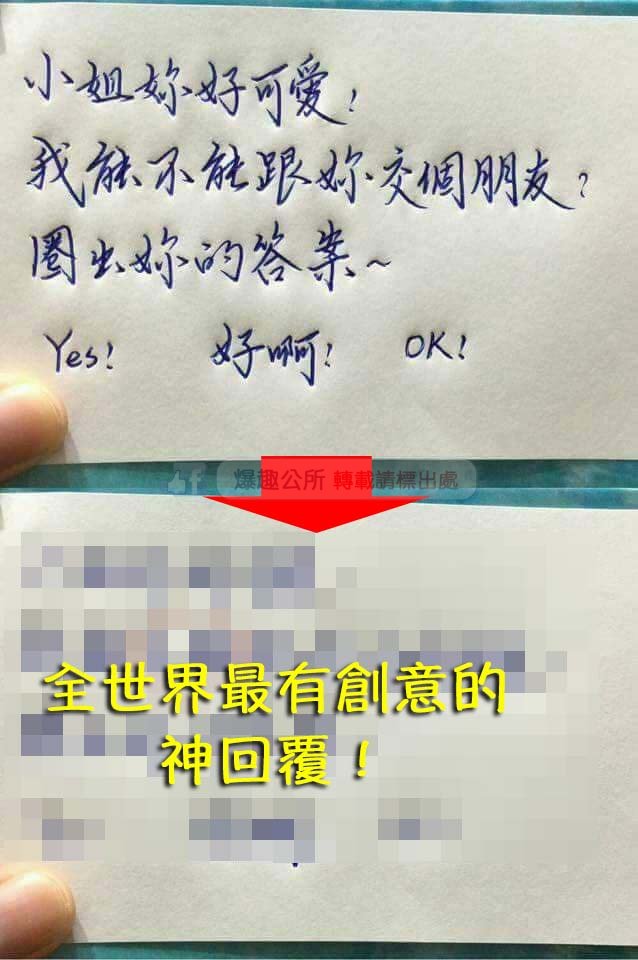 小姐妳好可愛!
我能不能跟妳交個朋友?
圈出妳的答案~
Yes! 好啊! OK!
爆趣公所 轉載請標出處
全世界最有創意的
神回覆!